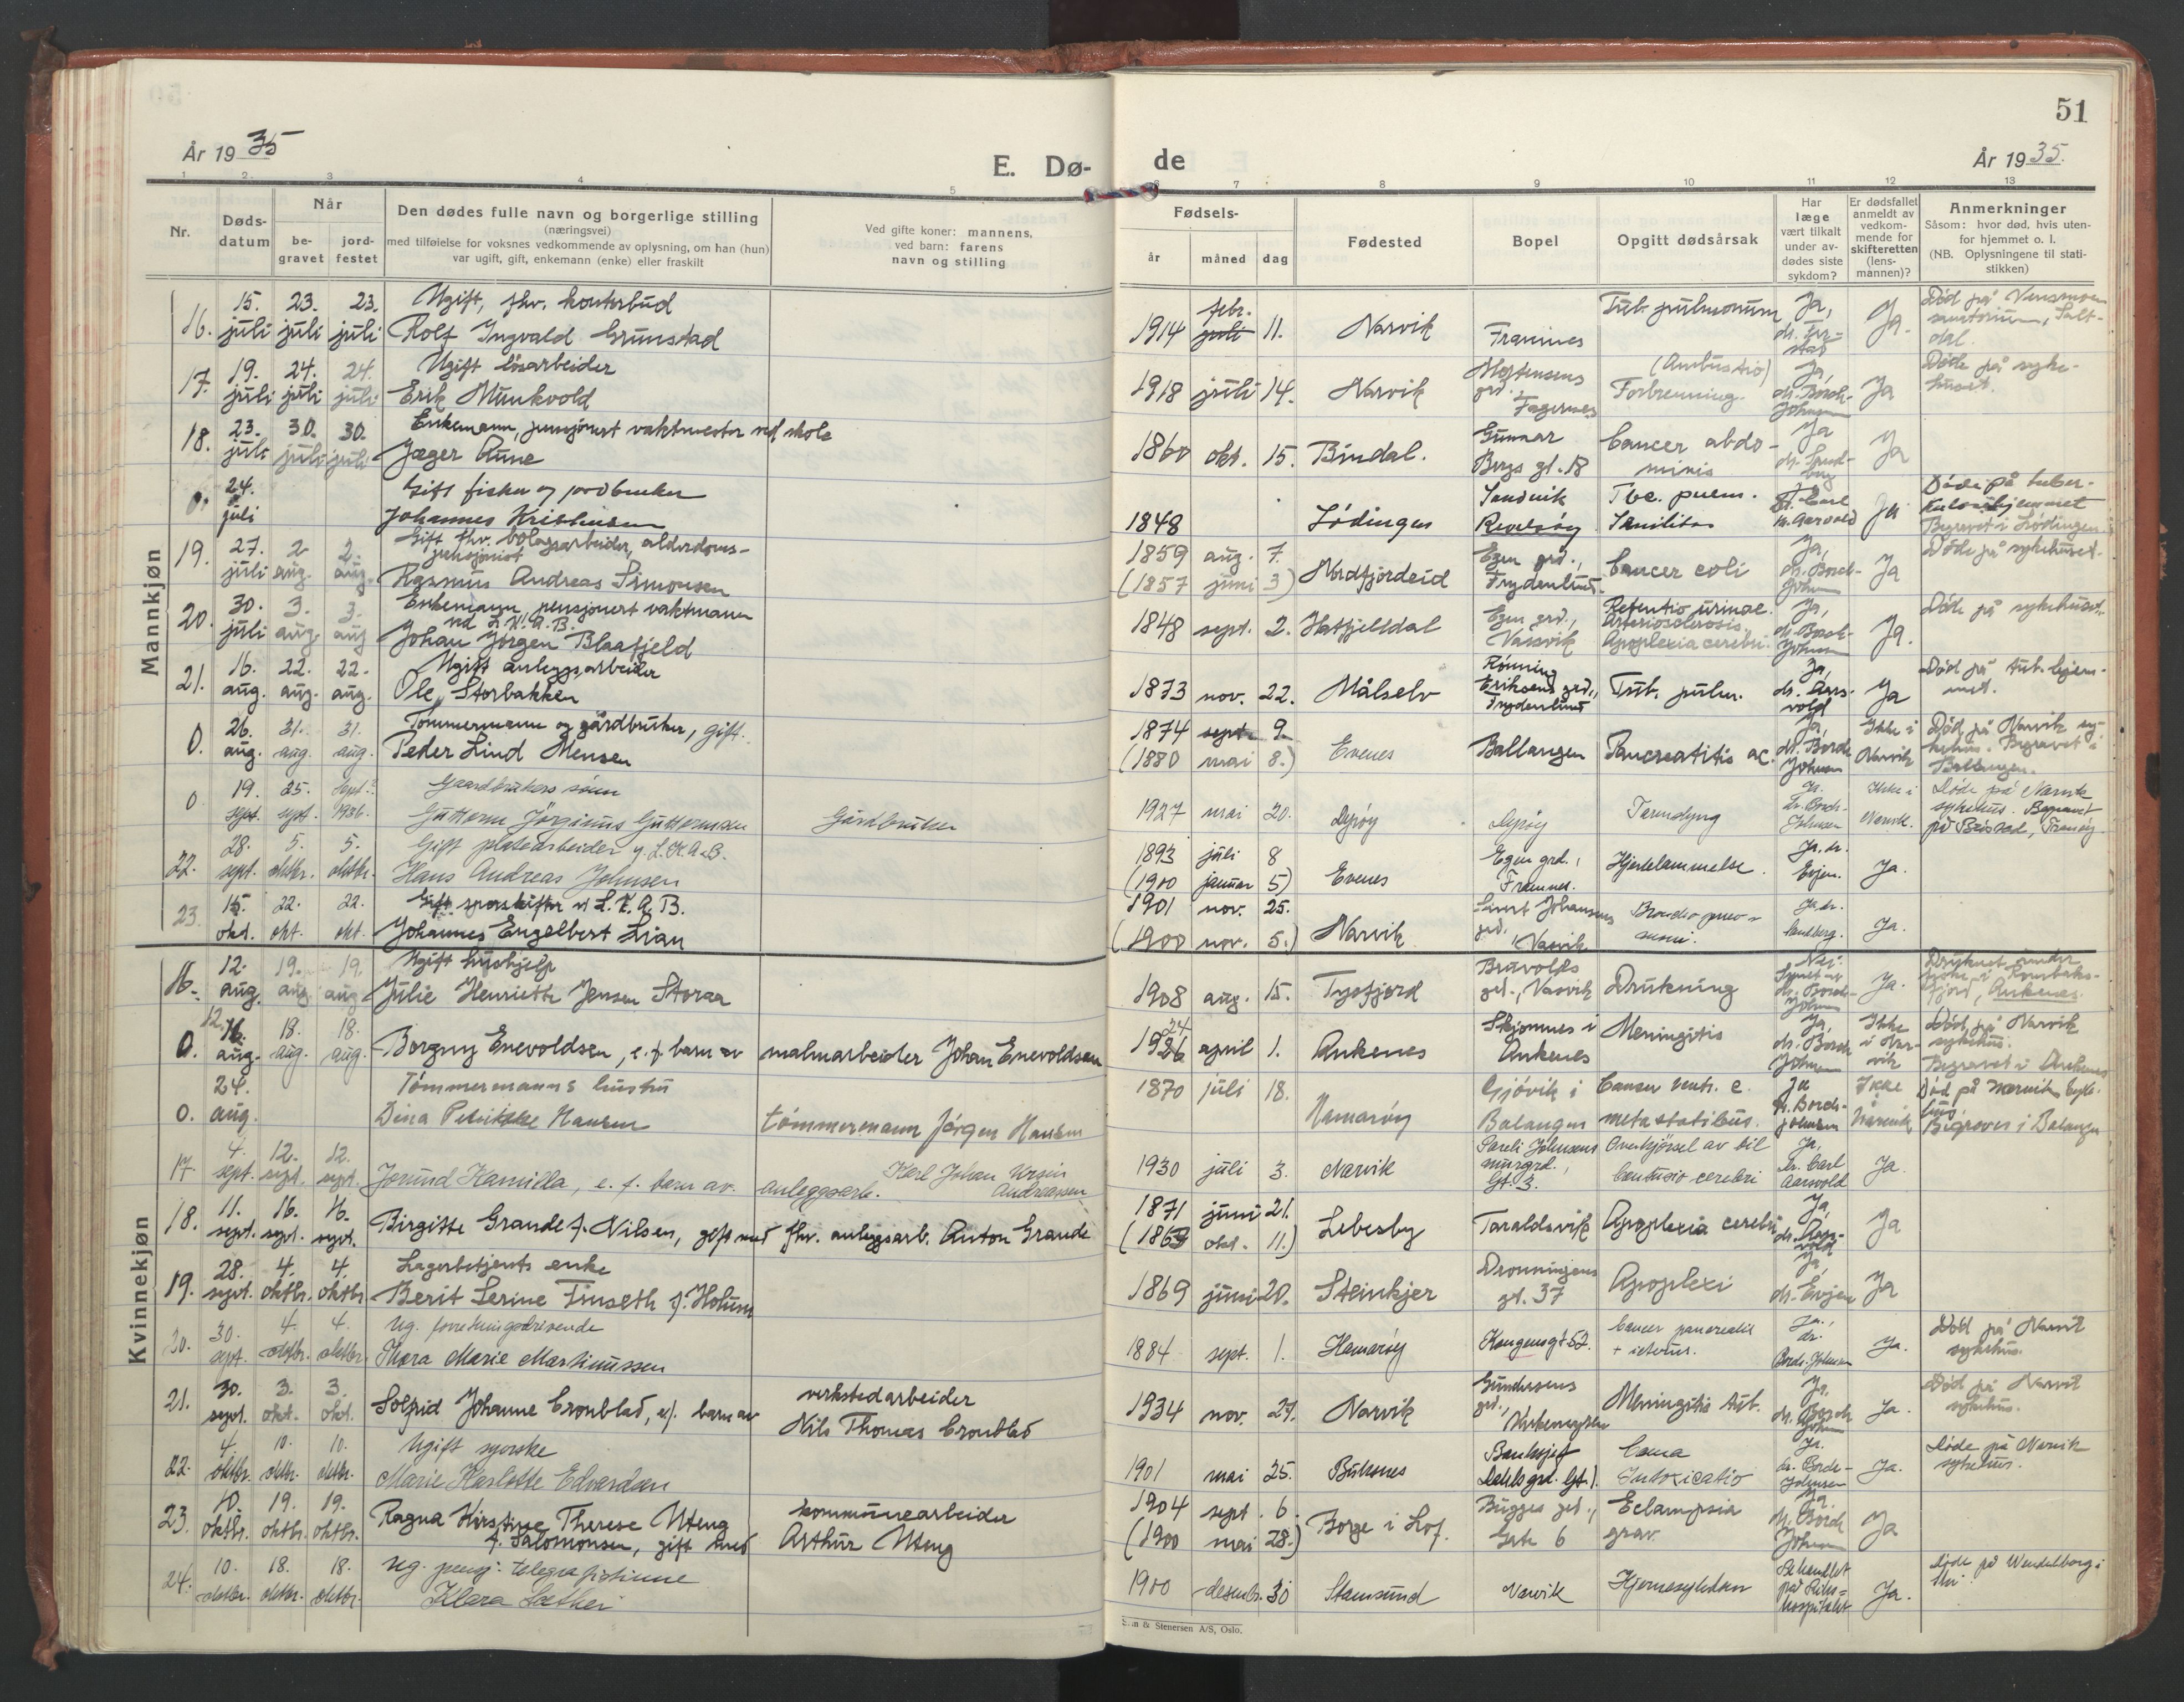 51
År 1935
E. Dø-
de
År 1935.
1 2. 3 4 5 6 7 8 9 10 11 12 13
Nr.
Døds-
datum
Når
be-
gravet
jord-
festet
Den dødes fulle navn og borgerlige stilling
(næringsvei)
med tilføielse for voksnes vedkommende av oplysning, om han (hun)
var ugift, gift, enkemann (enke) eller fraskilt
Ved gifte koner: mannens,
ved barn: farens
navn og stilling
Fødsels-
år måned dag
Fødested
Bopel
Opgitt dødsårsak
Har
læge
vært tilkalt
under av-
dødes siste
sykdom?
Er dødsfallet
anmeldt av
vedkom-
mende for
skifteretten
(lens-
mannen)?
Anmerkninger
Såsom: hvor død, hvis uten-
for hjemmet o. l.
(NB. Oplysningene til stati-
stikken)
Mannkjøn
16. 15. juli 23. juli 23. juli Ugift, fhv. kontorbud
Rolf Ingvald Grunstad
1914 febr. 11. Narvik Framnes Tub. pulmonum Ja, Ja. Død på
17. 19. juli 24. juli 24. juli Ugift løsarbeider
Erik Munkvold
1918 juli 14. Narvik Mortensens grd. Fagernes (Ambustio) Forbrenning. Ja, dr. Borch-Johnsen Ja Døde på sykehuset.
18. 23. juli 30. juli 30. juli Enkemann, pensjonert vaktmester ved skole
Jæger Aune
1860 okt. 15. Bindal. Gunnar Bergs gt. 18 Cancer abdominis Ja Ja
0. 24. juli Gift fisker og jordbruker
Johannes Kristensen
1848 Lødingen Sandvik Tbc. pulm. Senilitas dr. Carl Aarvold Ja Døde på tuberkulosehjemmet Begravet i Lødingen.
19. 27. juli 2. aug. 2. aug. Gift fhv. bolagsarbeider, alderdoms-
pensjonist
Rasmus Andreas Simonsen
1859 aug. 7. (1857 juni 3) Nordfjordeid Egen grd., Frydenlund. Cancer coli Ja, dr. Borch-Johnsen Ja Døde på sykehuset.
20. 30. juli 3. aug. 3. aug Enkemann, pensjonert vaktmann
ved L.K.A.B.
Johan Jørgen Blaafjeld
1848 sept. 2. Hatfjelldal Egen grd., Vassvik Retentio urinae. Arteriosclerosis. Apoplexia cerebri. Ja, dr. Borch-Johnsen Ja. Døde på sykehuset.
21. 16. aug. 22. aug. 22. aug. Ugift anleggsarbeider
Ole Storbakken
1873 nov. 22. Målselv Rønning Eriksens grd., Frydenlund Tub. pulm. Ja, dr. Aarsvold Ja Død på tub. hjemmet.
0. 26. aug. 31. aug. 31. aug. Tømmermann og gårdbruker, gift.
Peder Lind Mensen
1874 sept. 9. (1880 mai 8.) Evenes Ballangen Pancreatitis ac. Ja, dr. Borch Johnsen Ikke i Narvik Død på Narvik sykehus. Begravet i Ballangen.
0 19. sept. 25. sept. Sept. 1936. Gaardbrukers sønn
Guttorm Jørginus Guttormsen Gårdbruker
1927 mai 20. Dyrøy Dyrøy Tarmslyng Ja. Dr. Borch-Johnsen Ikke i Narvik. Døde på Narvik sykehus. Begravet på Brøstad, Tranøy
22. 28. sept. 5. oktbr. 5. oktbr. Gift platearbeider v. L.K.A.B.
Hans Andreas Johnsen
1893 juli 8 (1900 januar 5) Evenes Egen grd., Framnes. Hjertelammelse. Ja, dr. Evjen. Ja.
23. 15. okt. 22. okt. 22. okt. Gift sporskifter v. L.K.A.B.
Johannes Engelbert Lian
1901 nov. 25. (1900 nov. 5.) Narvik Johansens grd. Vasvik Ja, dr. Sandberg. Ja.
Kvinnekjøn
16. 12. aug. 19. aug 19. aug Ugift hushjelp
Julie Henriette Jensen Storaa
1908 aug. 15. Tysfjord Bravolds grd., Vasvik Drukning Nei. Synet av dr. Borch-Johnsen Ja. Ankenes.
0. 12. aug. 18. aug. 18. aug. Borgny Enevoldsen, e. f. barn av malmarbeider Johan Enevoldsen
24 april 1. Ankenes Skjomnes i Ankenes Meningitis Ja, dr. Borch Johnsen Ikke i Narvik Død på Narvik sykehus. Begravet i Ankenes
0. 24. aug. Tømmermanns hustru
Dina Hansen tømmermann Jørgen Hansen
1870 juli 18. Hamarøy Gjøvik i Balangen Cancer ventr. c. metastatibus. Ja dr. Borch-Johnsen Ikke i Narvik Død på Narvik sykehus. Begraves i Balangen
17. 4. sept. 12. sept. 12. sept. Jorund Kamilla, e. f. barn av. anleggsarb. Karl Johan Ursin Andreassen
1930 juli 3. Narvik Johnsens murgrd., Gt. 3. Overkjørsel av bil Contusio cerebri Ja, Dr. Carl Aarvold Ja.
18. 11. sept. 16. sept. 16. sept. Birgitte Grande f. Nilsen, gift med fhv. anleggsarb. Anton Grande
1871 juni 21. (1869 okt. 11.) Lebesby Taraldsvik Apoplexia cerebri Ja, dr. Aarsvold Ja
19. 28. sept. 4. oktbr. 4. oktbr Lagerbetjents enke
Berit Serine Finseth f. Holum
1869 juni 20. Steinkjer Dronningens gt. 37 Apoplexi Ja, dr. Evjen Ja
20. 30. sept. 4. oktbr. 4. oktbr. Ug. forretningsdrivende
Thora Marie Martinussen
1884 sept. 1. Hamarøy Kongensgt 52. Cancer pancreatis + icterus. Ja., dr. Borch-Johnsen Ja. Død på Narvik sykehus.
21. 30. sept. 3. okt. 3. okt. Solfrid Johanne Cronblad, e.f. barn av verkstedarbeider
Nils Thomas Cronblad
1934 nov. 27. Narvik Gundersens grd., Meningitis tub. Ja, dr. Borch Johnsen Ja. Død på Narvik sykehus.
22. 4. oktbr. 10. oktbr. 10. oktbr. Ugift syerske
Marie Karlotte Edvardsen
1901 mai 25. Buksnes Banksjef Coma Intoxicatio Ja. Dr. Borch-Johnsen Ja. Døde på Narvik sykehus.
23. 10. oktbr. 19. oktbr. 19. oktbr. Ragna Kirstine Therese Uteng
f. Salomonsen, gift med kommunearbeider
Arthur Uteng
1904 sept. 6. (1900 mai 28.) Borge i Lof. Bugges grd., Gate 6 Eclampsia grav. Ja. dr. Borch Johnsen Ja
24. 10. oktbr. 18. oktbr. 18. oktbr. Ug. pensj. telegrafistinne
Klara Sæther
1900 desembr. 30 Stamsund Narvik Hjernesykdom Behandlet på Rikshospitalet Ja. Døde på
& Stenersen A/S, Oslo.